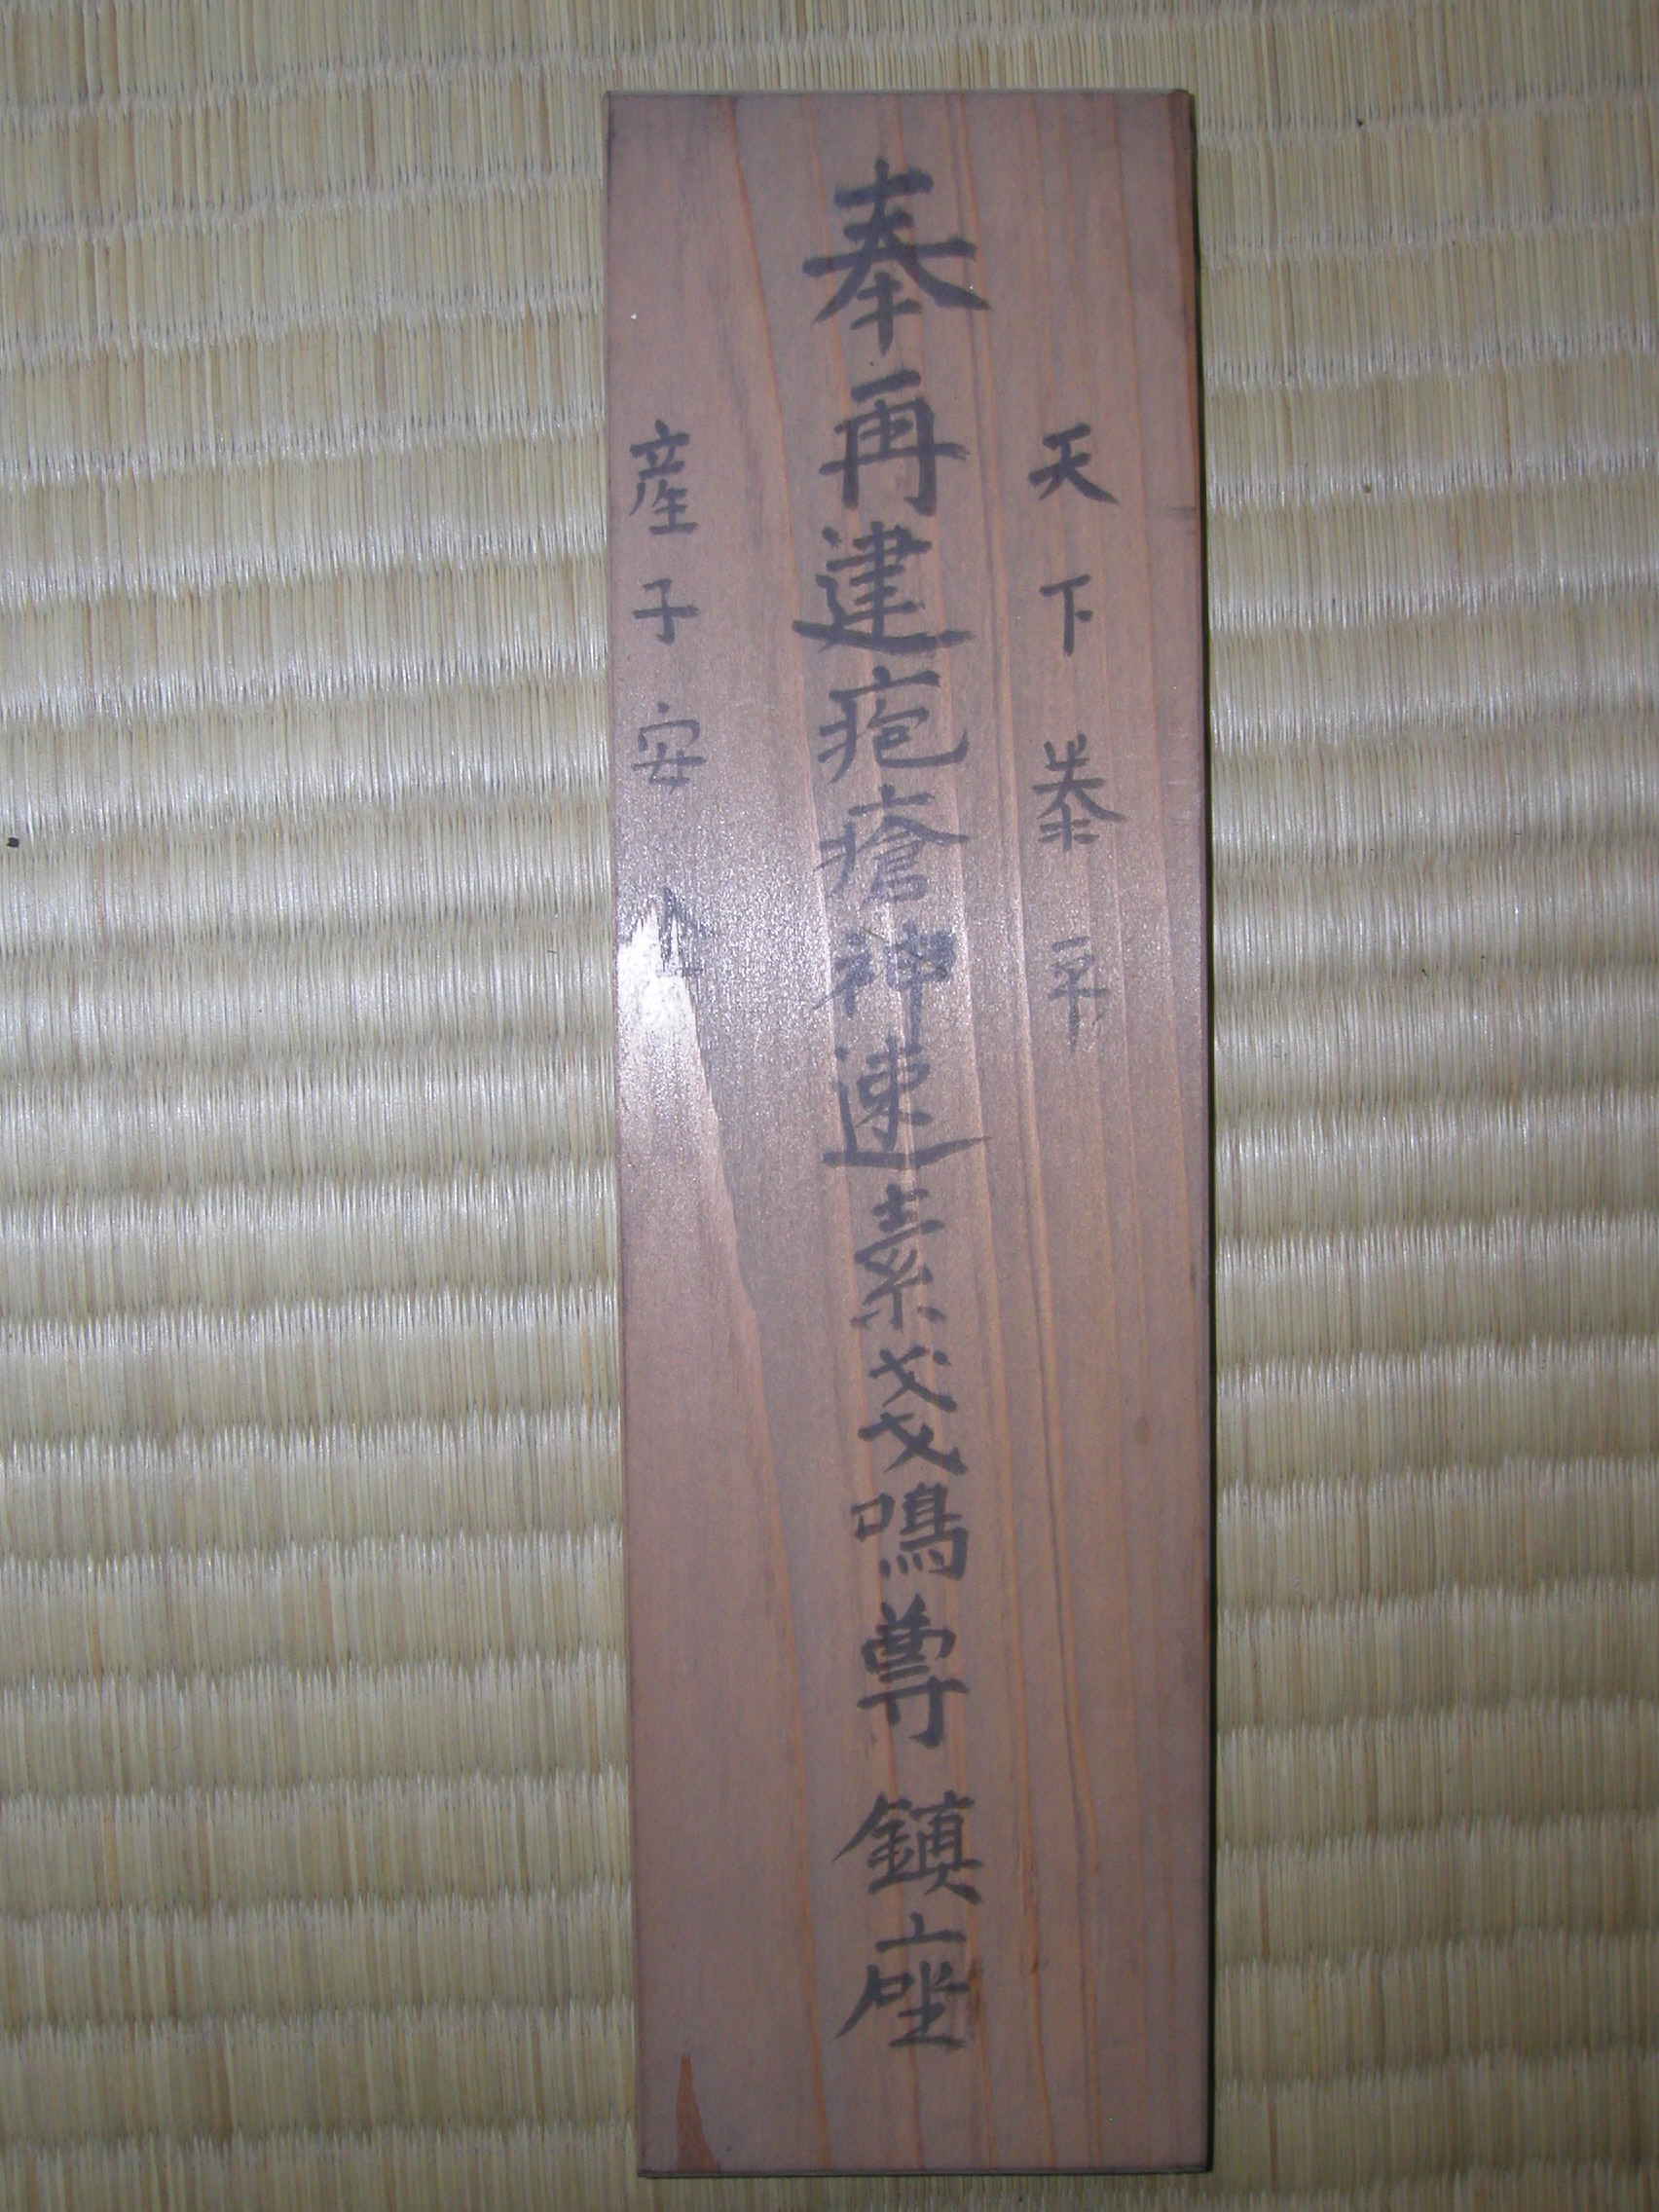 天下泰平
奉再建疱瘡神速素戔鳴尊鎮座
産子安全